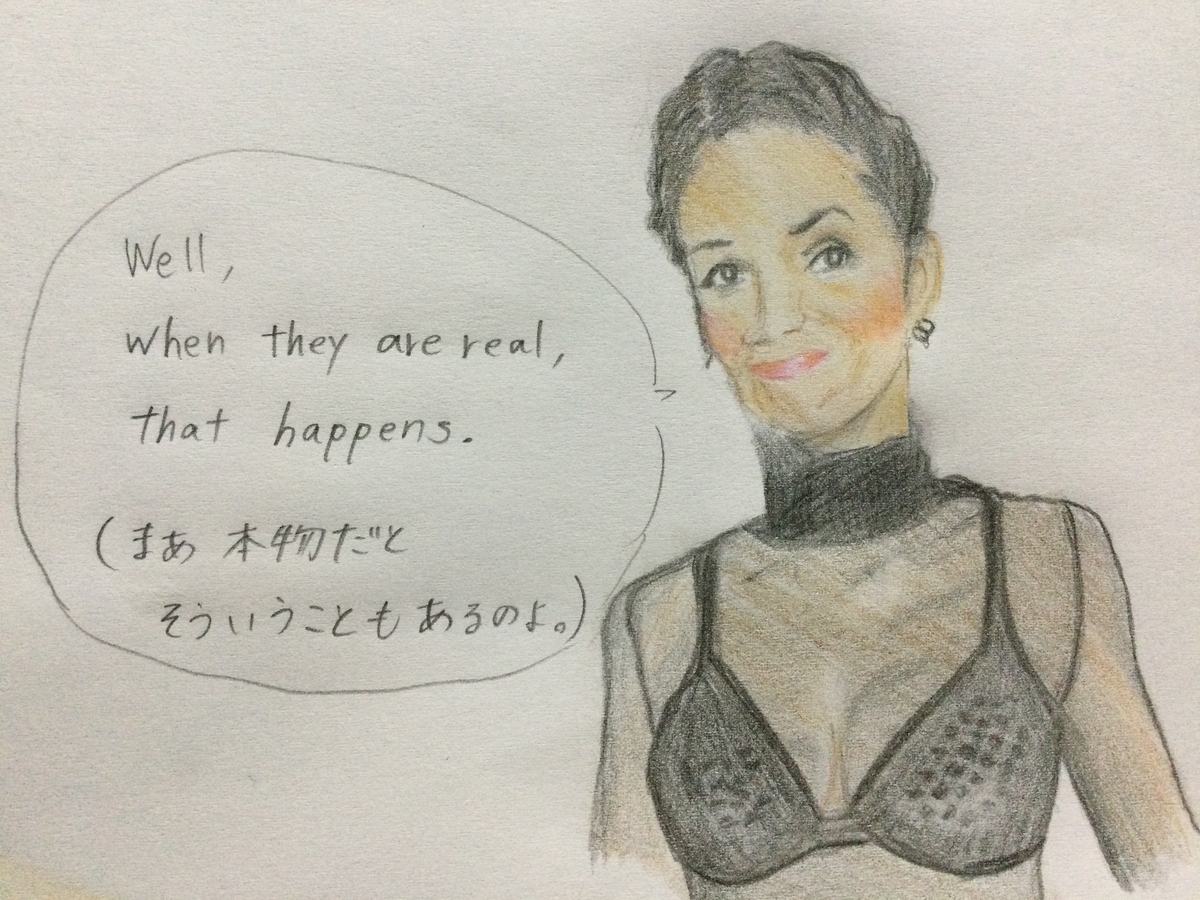 Well,
when they are real,
that happens.
(まあ 本物だと
そういうことも あるのよ。)